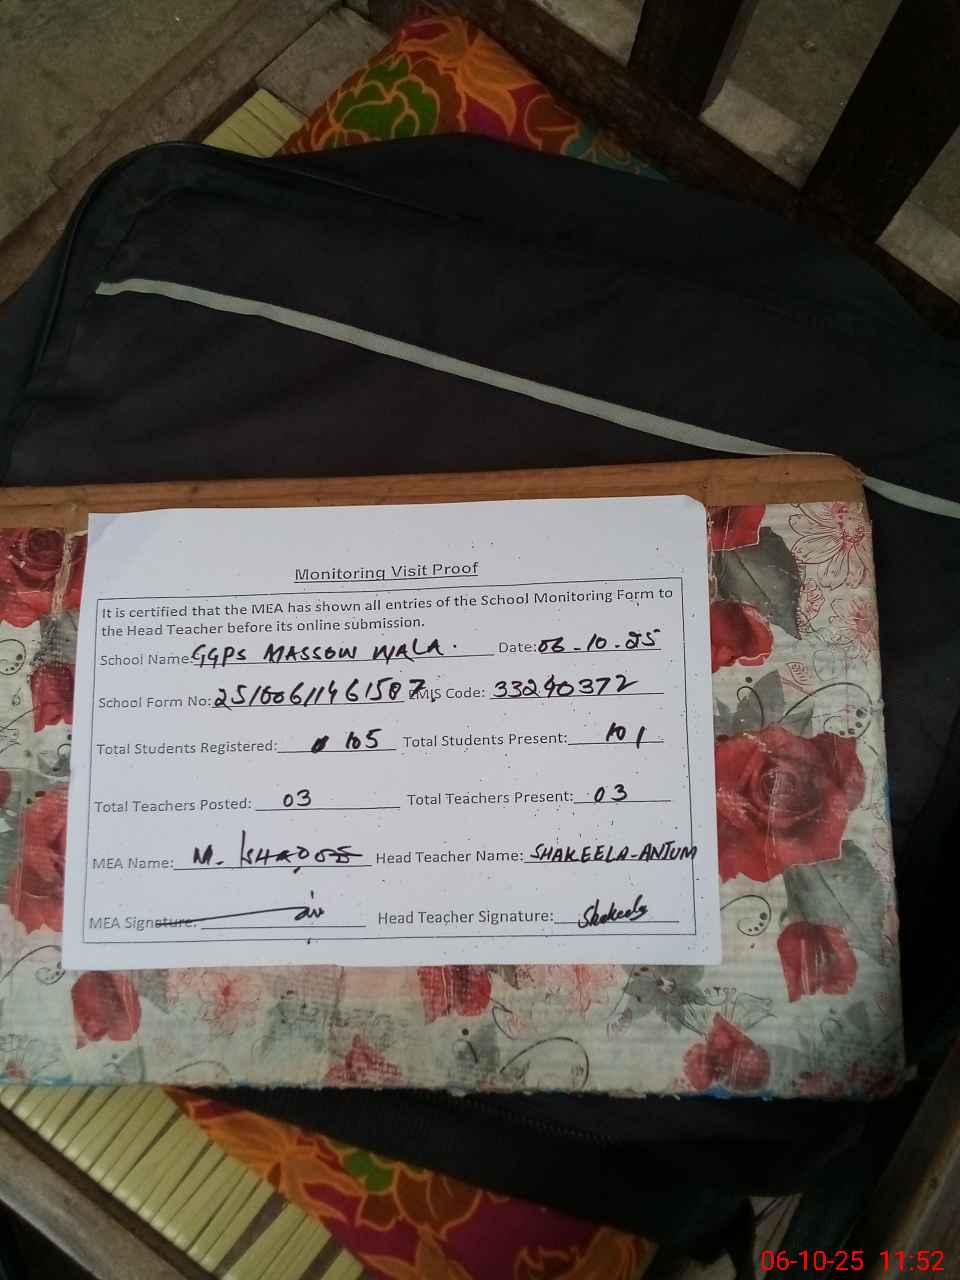 Monitoring Visit Proof
It is certified that the MEA has shown all entries of the School Monitoring Form to
the Head Teacher before its online submission.
School Name: GGPS MASSOW WALA. Date: 06-10-25
School Form No: EMIS Code: 33240372
Total Students Registered: 105 Total Students Present: 101
Total Teachers Posted: 03 Total Teachers Present: 03
MEA Name: M. Head Teacher Name: SHAKEELA-ANJUM
MEA Signature: Head Teacher Signature: Shakeela
06-10-25 11:52